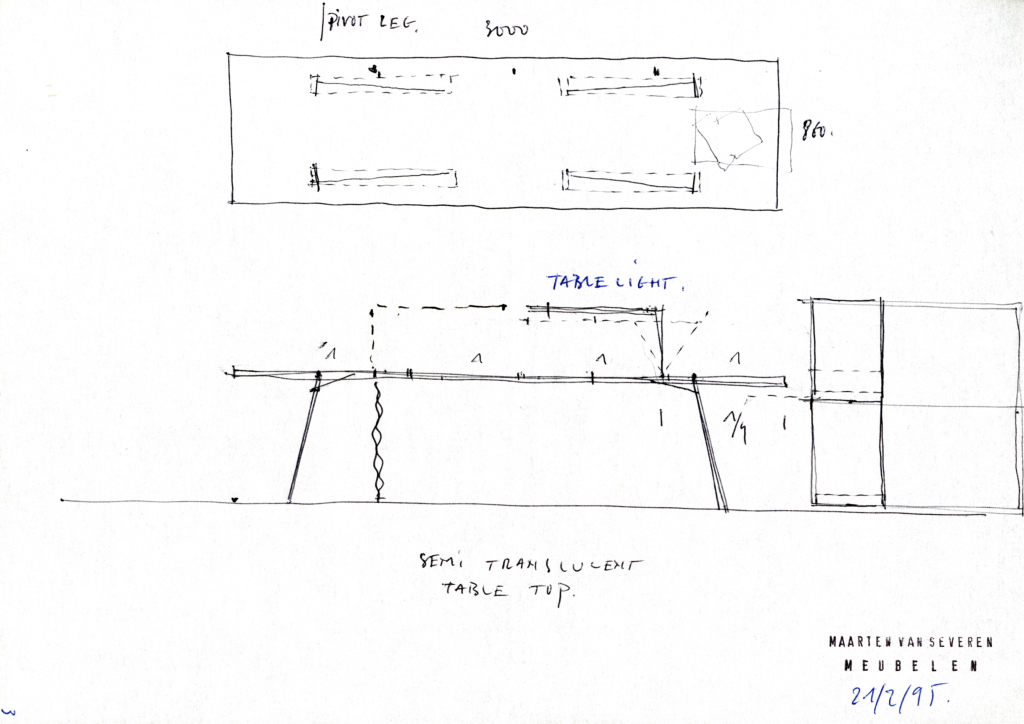 PIVOT LEG.
3000
860.
TABLE LIGHT.
1 1 1 1
1/4
SEMI TRANSLUCENT
TABLE TOP.
MAARTEN VAN SEVEREN
MEUBELEN
21/2/95.